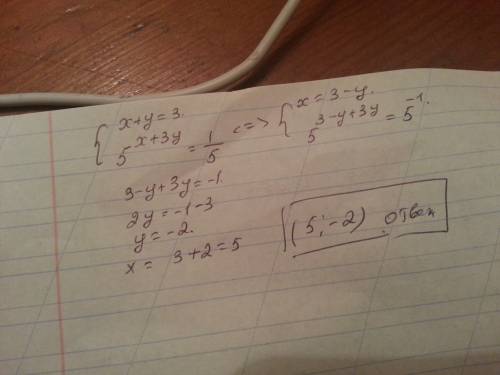 { x+y=3.
5^{x+3y} = 1/5 <=> { x = 3-y.
5^{3-y+3y} = 5^{-1}.
3-y+3y=-1.
2y=-1-3
y=-2.
x= 3+2=5
(5;-2) ответ